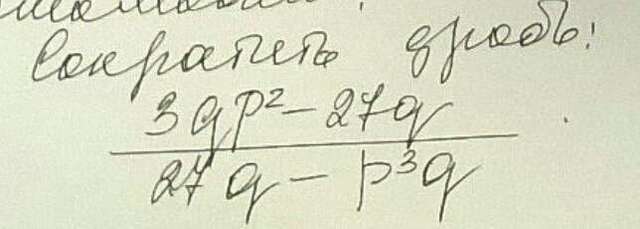 Сократить дробь:
3qp² – 27q
27q – p³q